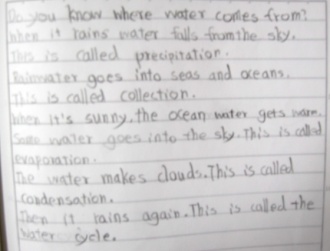 Do you know where water comes from?
When it rains water falls from the sky.
This is called precipitation.
Rainwater goes into seas and oceans.
This is called collection.
When it's sunny, the ocean water gets warm.
Some water goes into the sky. This is called
evaporation.
The water makes clouds. This is called
Condensation.
Then it rains again. This is called the
Water cycle.